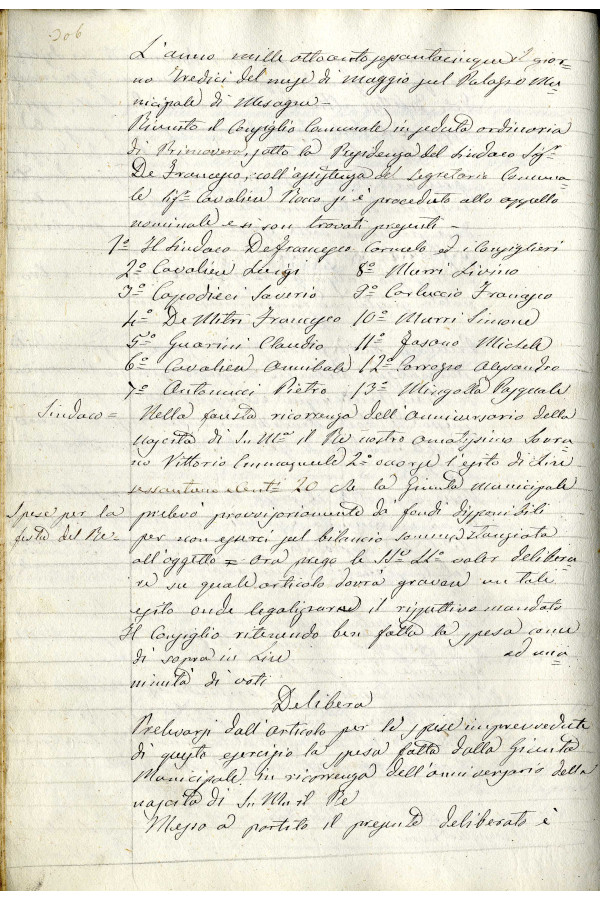 306
L'anno mille ottocento sessantacinque il gior=
no tredici del mese di Maggio sul Palazzo Mu=
nicipale di Mesagne =
Riunito il Consiglio Comunale in seduta ordinaria
di Primavera, sotto la Presidenza del Sindaco Sigr
De Francesco, coll'assistenza del Segretario Comuna=
le Sigr Cavaliere Rocco si è proceduto allo appello
nominale e si son trovati presenti =
1º Il Sindaco DeFrancesco Carmelo ed i Consiglieri
2º Cavaliere Luigi 8º Murri Livino
3º Capodieci Saverio 9º Carluccio Francesco
4º De Mitri Francesco 10º Murri Simone
5º Guarini Claudio 11º Fasano Michele
6º Cavaliere Annibale 12º Alessandro
7º Antonucci Pietro 13º Mingolla Pasquale
Sindaco = Nella fausta ricorrenza dell'anniversario della
nascita di Su Mª il Re nostro amatissimo Sovra=
no Vittorio Emmanuele 2º occorse l'esito di Lire
sessantuno centi 20 che la Giunta Municipale
Spese per la
festa del Re =
prelevò provvisoriamente da fondi disponibili
per non esserci sul bilancio somma stanziata
all'oggetto = Ora prego le SSº LLº voler delibera=
re su quale articolo dovrà gravare un tale
esito onde legalizzare il rispettivo mandato
Il Consiglio ritenendo ben fatta la spesa come
di sopra in Lire ad una=
nimità di voti
Delibera
Prelevarsi dall'articolo per le spese imprevvedute
di questo esercizio la spesa fatta dalla Giunta
Municipale in ricorrenza dell'anniversario della
nascita di Su M il Re
Messo a partito il presente deliberato è